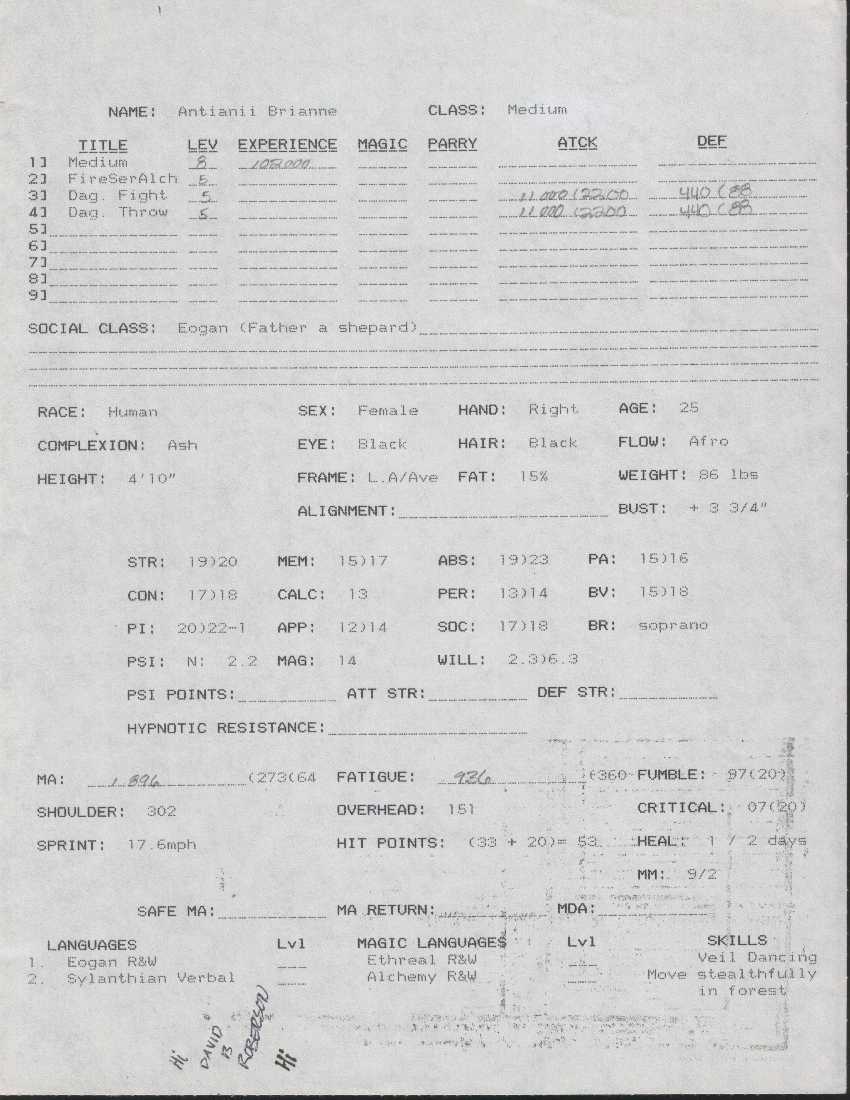 NAME: Antianii Brianne CLASS: Medium
TITLE LEV EXPERIENCE MAGIC PARRY ATCK DEF
1] Medium 8 102,000
2] FireSerAlch 5
3] Dag. Fight 5 11,000(2200 440(88
4] Dag. Throw 5 11,000(2200 440(88
5]
6]
7]
8]
9]
SOCIAL CLASS: Eogan (Father a shepard)
RACE: Human SEX: Female HAND: Right AGE: 25
COMPLEXION: Ash EYE: Black HAIR: Black FLOW: Afro
HEIGHT: 4'10" FRAME: L.A/Ave FAT: 15% WEIGHT: 86 lbs
ALIGNMENT: BUST: + 3 3/4"
STR: 19)20 MEM: 15)17 ABS: 19)23 PA: 15)16
CON: 17)18 CALC: 13 PER: 13)14 BV: 15)18
PI: 20)22-1 APP: 12)14 SOC: 17)18 BR: soprano
PSI: N: 2.2 MAG: 14 WILL: 2.3)6.3
PSI POINTS: ATT STR: DEF STR:
HYPNOTIC RESISTANCE:
MA: 1,896 (273(64 FATIGUE: 936 (360 FUMBLE: 97(20)
SHOULDER: 302 OVERHEAD: 151 CRITICAL: 07(20)
SPRINT: 17.6mph HIT POINTS: (33 + 20)= 53 HEAL: 1 / 2 days
MM: 9/2
SAFE MA: MA RETURN: MDA:
LANGUAGES Lvl MAGIC LANGUAGES Lvl SKILLS
1. Eogan R&W Ethreal R&W Veil Dancing
2. Sylanthian Verbal Alchemy R&W Move stealthfully
in forest
Hi
DAVID
B
ROBERSON
Hi